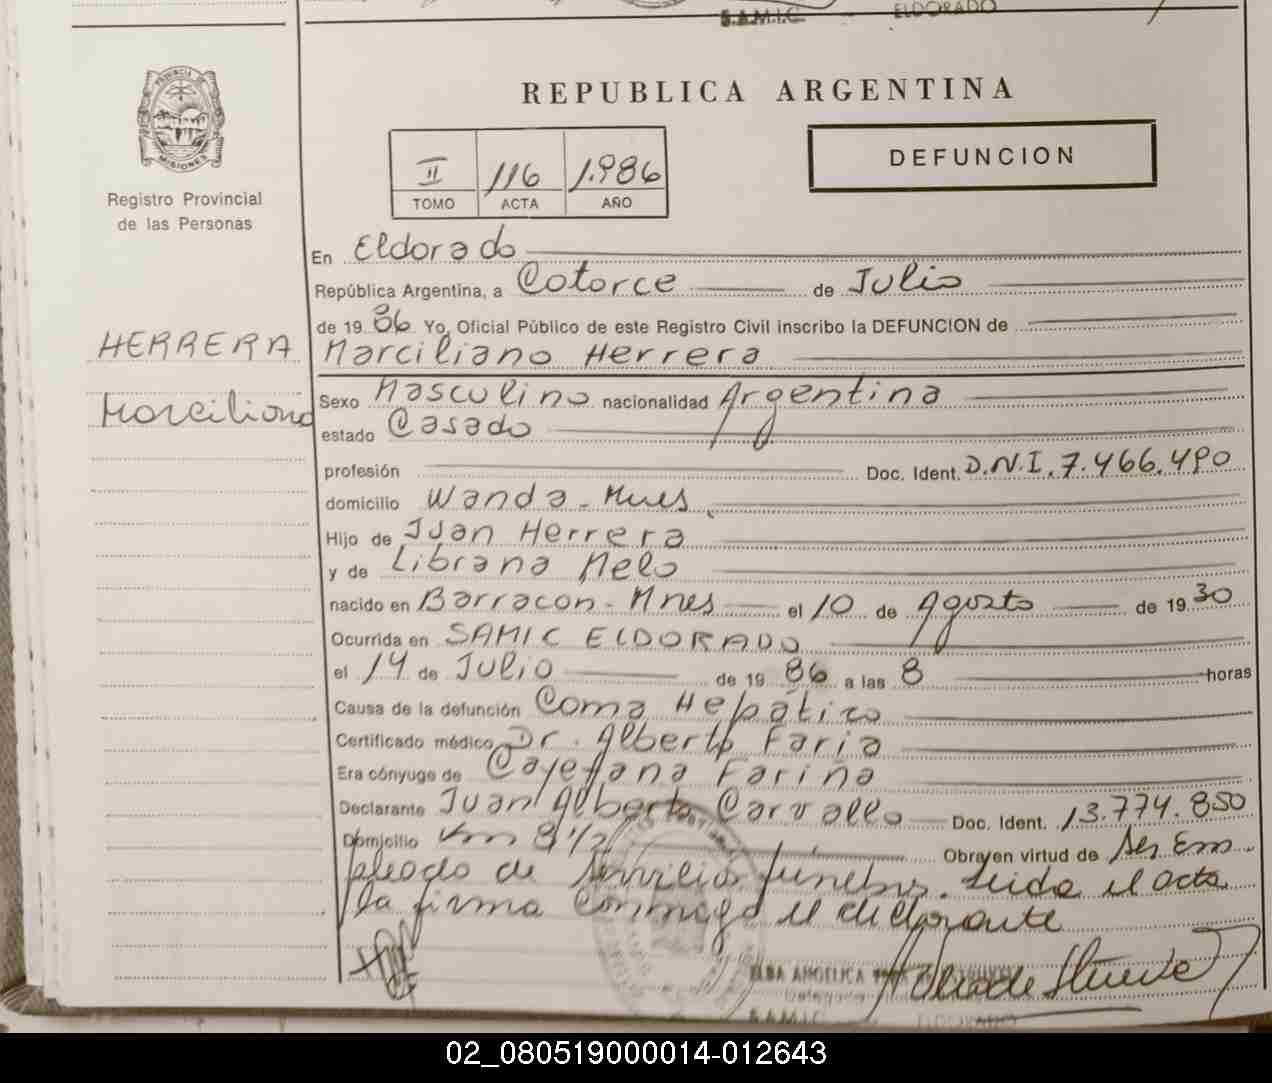 S.A.M.I.C ELDORADO
PROVINCIA DE
MISIONES
Registro Provincial
de las Personas
HERRERA
Marciliano
REPUBLICA ARGENTINA
II 116 1.986
TOMO ACTA AÑO
DEFUNCION
En Eldorado
República Argentina, a Catorce de Julio
de 19 86 Yo, Oficial Público de este Registro Civil inscribo la DEFUNCION de
Marciliano Herrera
Sexo Masculino nacionalidad Argentina
estado Casado
profesión Doc. Ident. D.N.I. 7.466.490
domicilio Wanda - Mnes.
Hijo de Juan Herrera
y de Librana Melo
nacido en Barracon - Mnes el 10 de Agosto de 19 30
Ocurrida en SAMIC ELDORADO
el 14 de Julio de 19 86 a las 8 horas
Causa de la defunción Coma Hepático
Certificado médico Dr. Alberto Faria
Era cónyuge de Cayetana Fariña
Declarante Juan Alberto Carvallo Doc. Ident. 13.774.850
Domicilio Km 8 1/2 Obra en virtud de Ser Em-
pleado de Servicios fúnebres. Leida el acta
la firma Conmigo el declarante
ELBA ANGELICA
Delegada
S.A.M.I.C. ELDORADO
02_080519000014-012643